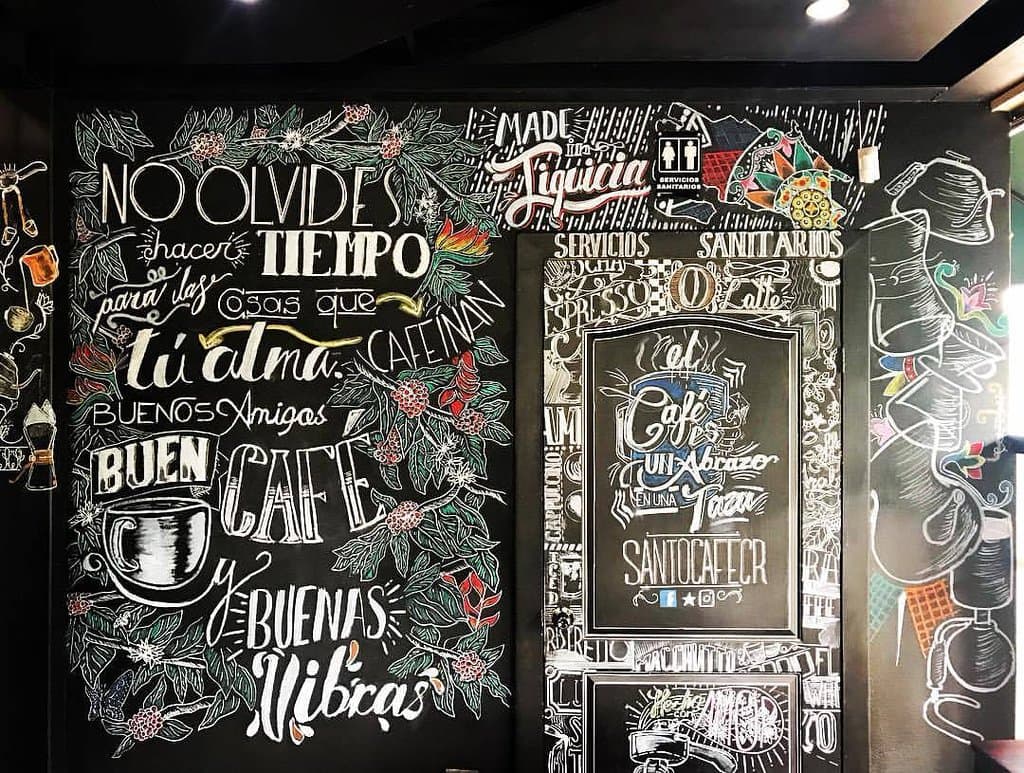 NO OLVIDES
hacer TIEMPO
para las Cosas que
tú alma.
CAFEINAN
BUENOS Amigos
BUEN CAFÉ
y
BUENAS
Vibras
MADE
in
Tiquicia
SERVICIOS
SANITARIOS
SERVICIOS SANITARIOS
ESPRESSO
Latte
CAPUCCINO
el
Café es
UN Abrazo
EN UNA Taza
SANTOCAFECR
Hecho
con